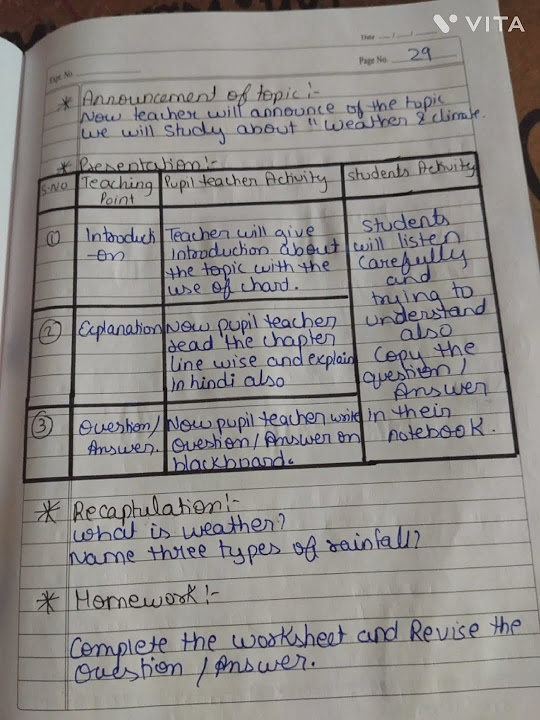 VITA
Date __/__/__
Expt. No.
Page No. 29
* Announcement of topic :-
Now teacher will announce of the topic
we will study about "Weather & climate.
* Presentation :-
S.NO
Teaching
Point
Pupil teacher Activity
Students Activity
①
Introducti
-on
Teacher will give
Introduction about
the topic with the
use of chart.
②
Explanation
Now pupil teacher
read the chapter
line wise and explain
in hindi also
③
Question/
Answer.
Now pupil teacher write
Question/Answer on
blackboard.
Students
will listen
carefully
and
trying to
understand
also
Copy the
question/
Answer
in their
notebook.
* Recaptulation :-
What is weather?
Name three types of rainfall?
* Homework :-
Complete the worksheet and Revise the
Question / Answer.